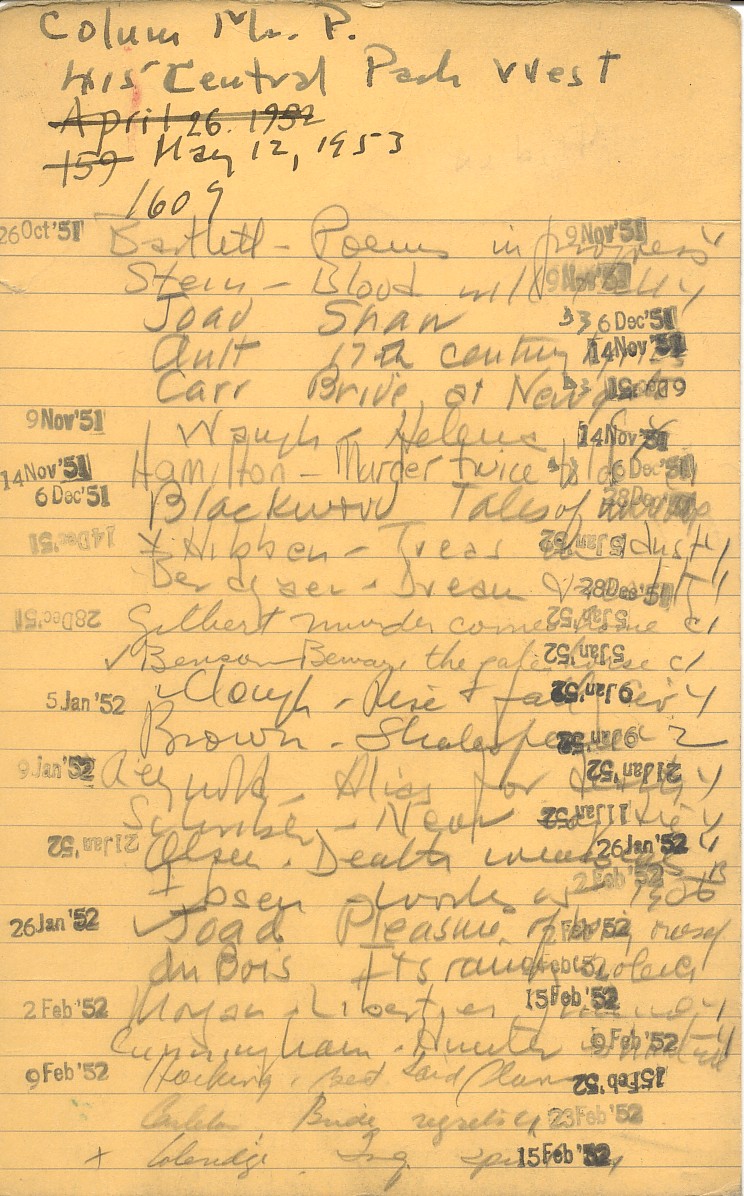 Colum Mr. P.
415 Central Park West
April 26. 1952
159 May 12, 1953
1609
26 Oct '51 Bartlett - Poems in progress 9 Nov '51
Stern - Blood will tell 9 Nov '51
Joad Shaw 6 Dec '51
Ault 17th century 14 Nov '51
Carr Bride at Newgate 6 Dec '51
9 Nov '51 Waugh - Helena 14 Nov '51
14 Nov '51 Hamilton - Murder twice told 6 Dec '51
6 Dec '51 Blackwood Tales of 28 Dec '51
14 Dec '51 Hibben - Treas in dust 5 Jan '52
Dream 28 Dec '51
28 Dec '51 Gilbert murder comes home 5 Jan '52
Benson - Beware the pale horse 5 Jan '52
5 Jan '52 Clough - Rise & fall 9 Jan '52
Brown - Shakespeare 9 Jan '52
9 Jan '52 Reynolds - Alias for death 21 Jan '52
Near 11 Jan '52
21 Jan '52 Olsen - Death 26 Jan '52
Ibsen - works 2 Feb '52
26 Jan '52 Joad Pleasure of being 2 Feb '52
du Bois Its raining violence 9 Feb '52
2 Feb '52 Morgan - Liberties 15 Feb '52
Cunningham - Hunter is the 9 Feb '52
9 Feb '52 Hocking - best laid plans 15 Feb '52
Carleton Bride regrets 23 Feb '52
+ Coleridge Inq. 15 Feb '52